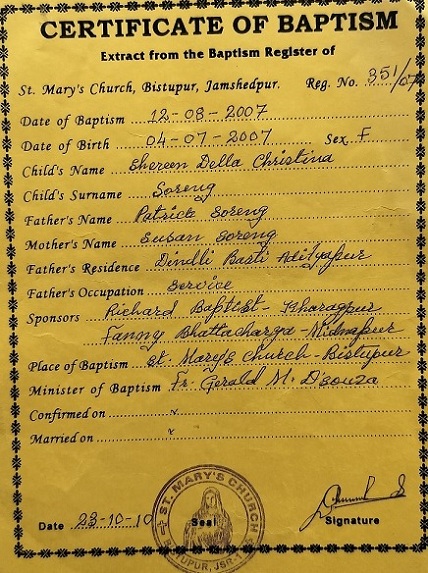 CERTIFICATE OF BAPTISM
Extract from the Baptism Register of
St. Mary's Church, Bistupur, Jamshedpur. Reg. No. 351/07
Date of Baptism 12-08-2007
Date of Birth 04-07-2007 Sex F
Child's Name Shereen Della Christina
Child's Surname Soreng
Father's Name Patrick Soreng
Mother's Name Susan Soreng
Father's Residence Dindli Basti Adityapur
Father's Occupation Service
Sponsors Richard Baptist - Kharagpur
Fanny Bhattacharya - Midnapur
Place of Baptism St. Mary's Church - Bistupur
Minister of Baptism Fr. Gerald M. D'souza
Confirmed on
Married on
ST. MARY'S CHURCH
BISTUPUR, JSR
Date 23-10-10 Seal Signature